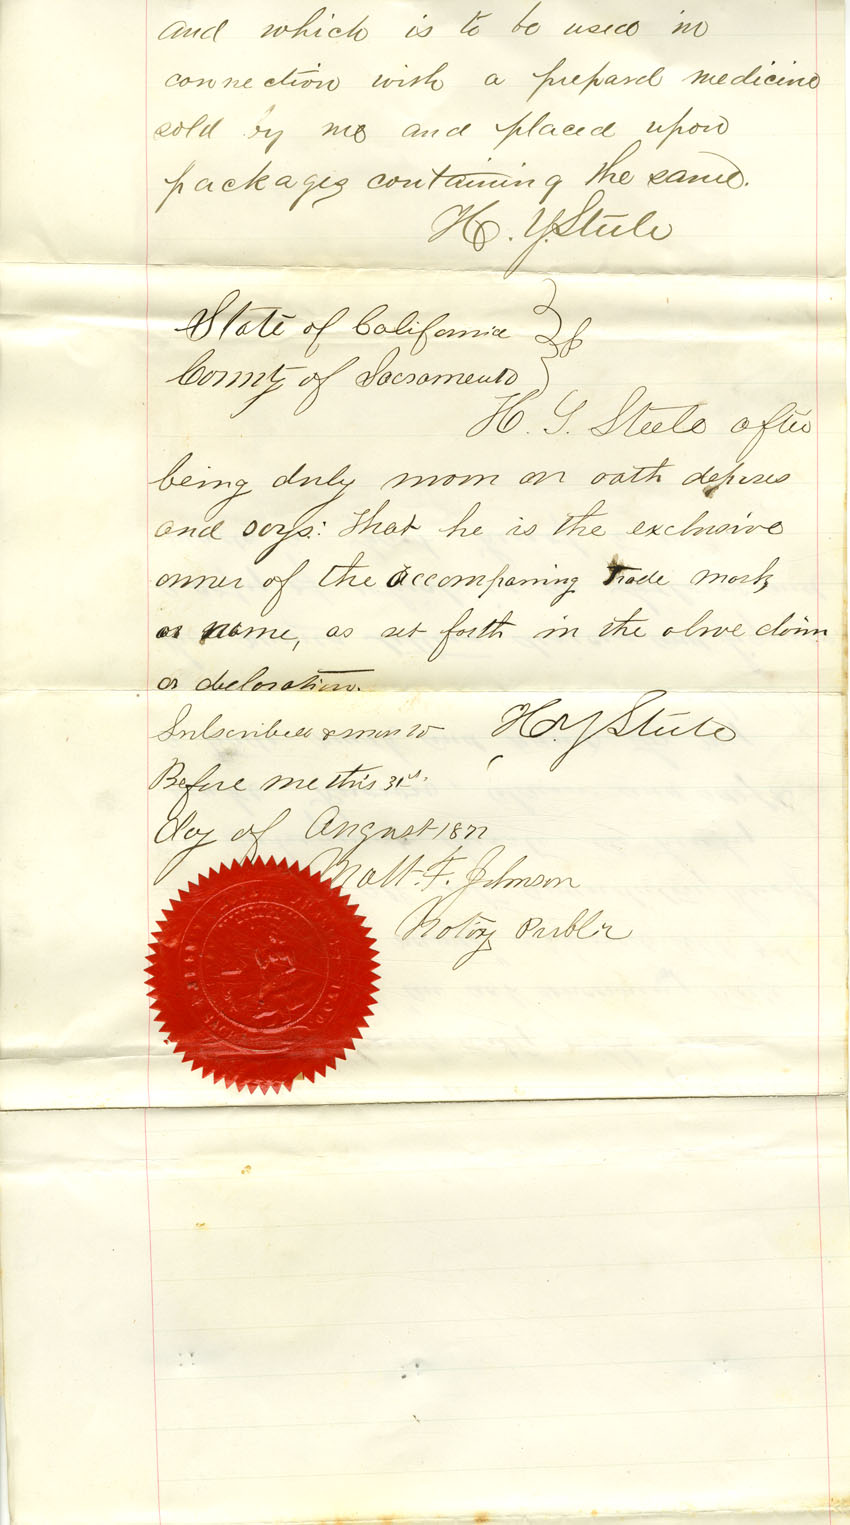 and which is to be used in
connection with a prepard medicine
sold by me and placed upon
packages containing the same.
H. Y. Steele
State of California
County of Sacramento } ss
H. G. Steele after
being duly sworn on oath deposes
and says: that he is the exclusive
owner of the accompaning trade mark
or name, as set forth in the above claim
or decloration.
Subscribed & sworn to H. Y Steele
Before me this 31st.
day of August 187
Matt. F. Johnson
Notary Public